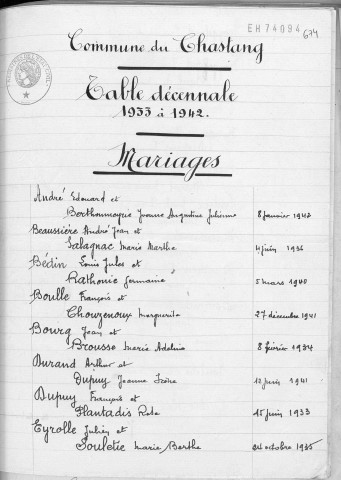 EH74094
674
Commune du Chastang
Table décennale
1933 à 1942.
Mariages
André Edouard et
Berthoumeyrie Yvonne Augustine Julienne 8 janvier 1942
Beaussière André Jean et
Salagnac Marie Marthe 4 juin 1936
Bédin Louis Jules et
Rathonie Germaine 5 mars 1940
Boulle François et
Chouzenoux Marguerite 27 décembre 1941
Bourg Jean et
Brousse Marie 8 février 1934
Durand Arthur et
Dupuy Jeanne Irène 12 juin 1941
Dupuy François et
Plantadis Rose 15 juin 1933
Eyrolle Julien et
Souletie Marie Berthe 24 octobre 1935